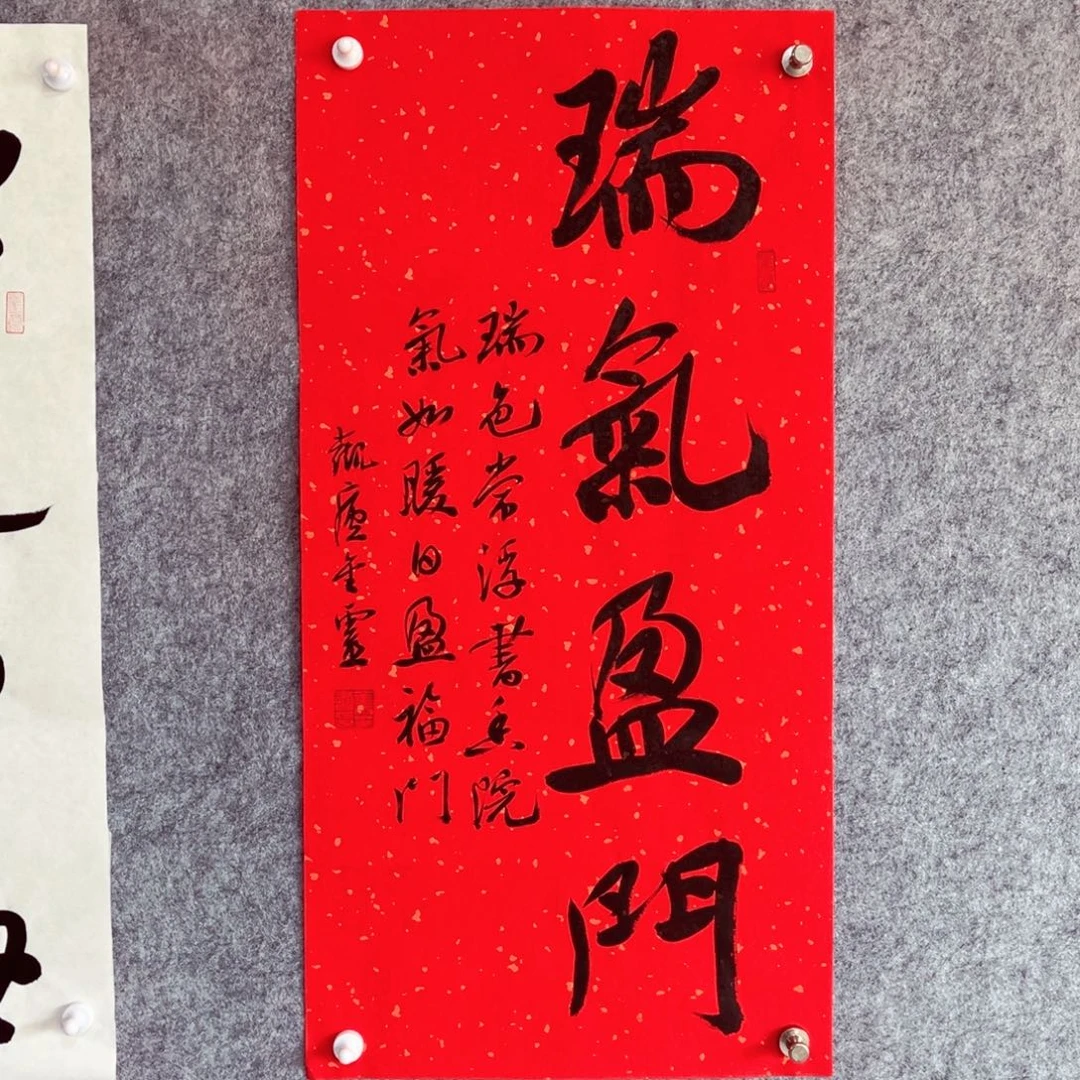 瑞氣盈門
瑞色常浮書香院
氣如暖日盈福門